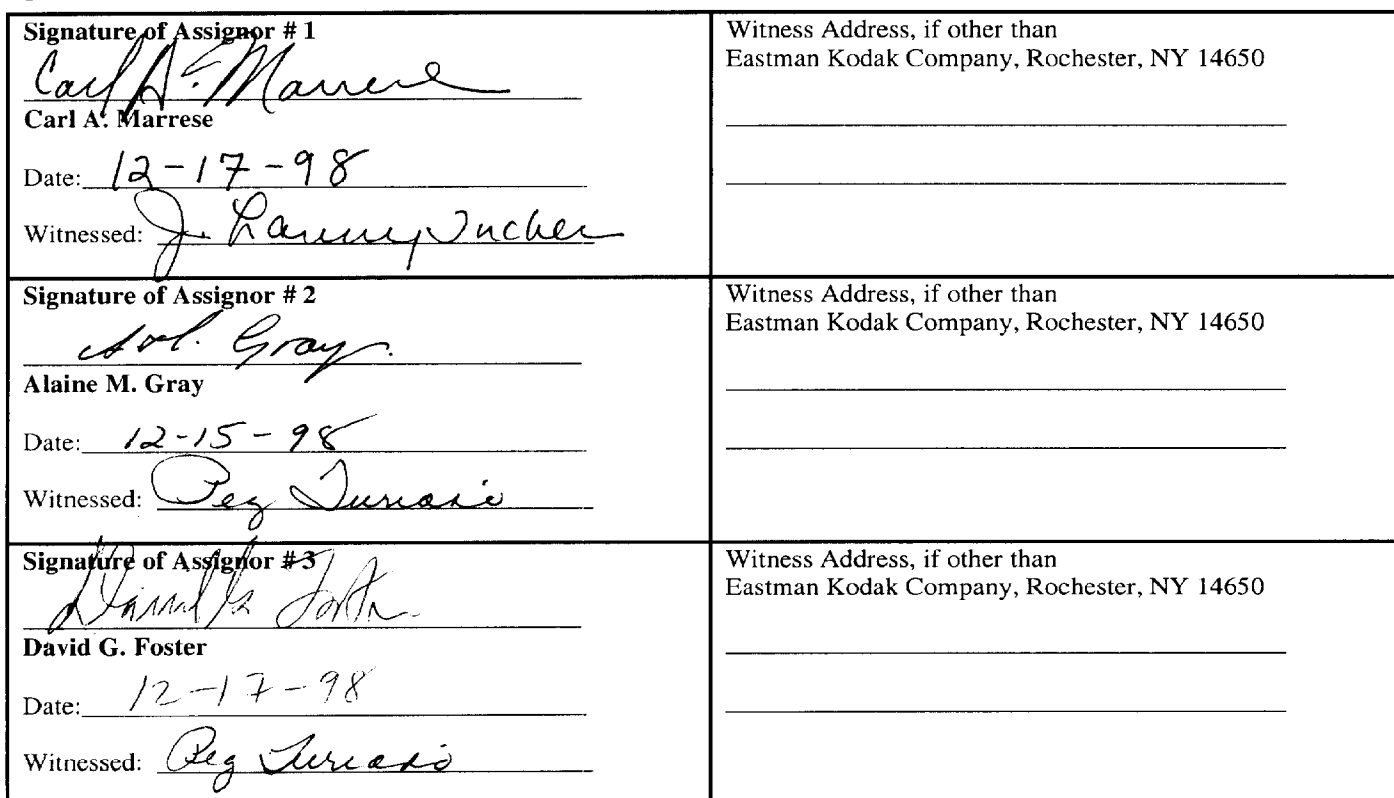 Signature of Assignor # 1
Carl A. Marrese
Carl A. Marrese
Date: 12-17-98
Witnessed: J. Lanny Tucker
Witness Address, if other than
Eastman Kodak Company, Rochester, NY 14650
Signature of Assignor # 2
Gray
Alaine M. Gray
Date: 12-15-98
Witnessed: Peg
Witness Address, if other than
Eastman Kodak Company, Rochester, NY 14650
Signature of Assignor # 3
David G. Foster
David G. Foster
Date: 12-17-98
Witnessed: Peg
Witness Address, if other than
Eastman Kodak Company, Rochester, NY 14650